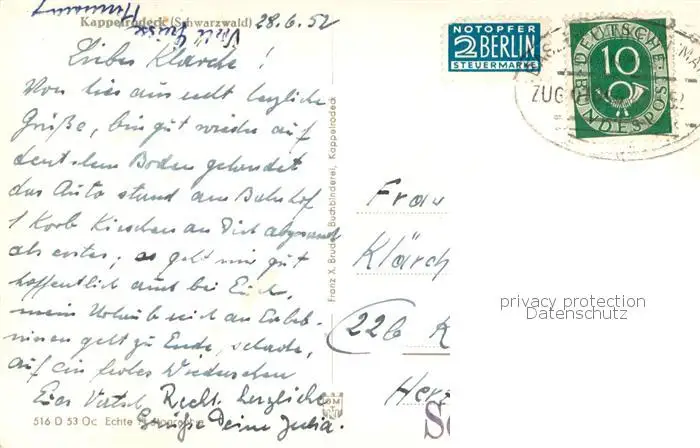 Kappelrodeck (Schwarzwald) 28.6.52
Viele Grüsse
Hermann
Liebes Klärche!
Von hier aus recht herzliche
Grüße, bin gut wieder auf
deutschem Boden gelandet
das Auto stand am Bahnhof
1 Korb Kirschen an Dich abgesandt
als erstes, es geht mir gut
hoffentlich auch bei Euch,
mein Urlaub reich an Erleb-
nissen geht zu Ende, schade,
auf ein frohes Wiedersehen
Recht herzliche
Grüße Deine Julia.
516 D 53 Oc Echte
Franz X. Bruder, Buchbinderei, Kappelrodeck
NOTOPFER
2 BERLIN
STEUERMARKE
DEUTSCHE
10
BUNDESPOST
ZUG
Frau
Klärch
(22b K
Herz
privacy protection
Datenschutz